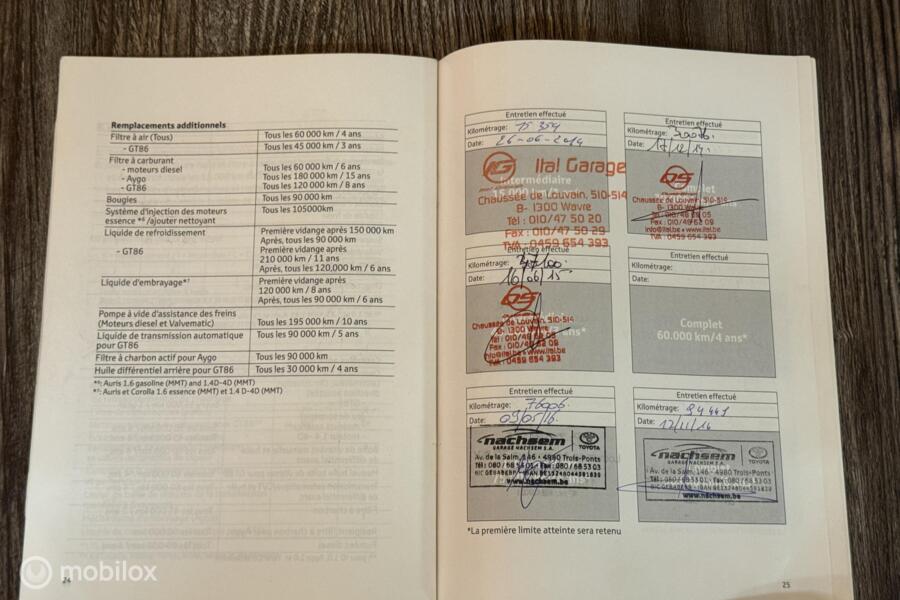 Remplacements additionnels
Filtre à air (Tous) Tous les 60 000 km / 4 ans
- GT86 Tous les 45 000 km / 3 ans
Filtre à carburant
- moteurs diesel Tous les 60 000 km / 6 ans
- Aygo Tous les 180 000 km / 15 ans
- GT86 Tous les 120 000 km / 8 ans
Bougies Tous les 90 000 km
Système d'injection des moteurs Tous les 105000km
essence *⁶ /ajouter nettoyant
Liquide de refroidissement Première vidange après 150 000 km
Après, tous les 90 000 km
- GT86 Première vidange après
210 000 km / 11 ans
Après, tous les 120,000 km / 6 ans
Liquide d'embrayage*⁷ Première vidange après
120 000 km / 8 ans
Après, tous les 90 000 km / 6 ans
Pompe à vide d'assistance des freins
(Moteurs diesel et Valvematic) Tous les 195 000 km / 10 ans
Liquide de transmission automatique Tous les 90 000 km / 5 ans
pour GT86
Filtre à charbon actif pour Aygo Tous les 90 000 km
Huile différentiel arrière pour GT86 Tous les 30 000 km / 4 ans
*⁶: Auris 1.6 gasoline (MMT) and 1.4D-4D (MMT)
*⁷: Auris et Corolla 1.6 essence (MMT) et 1.4 D-4D (MMT)
24
Entretien effectué
Kilométrage: 15 354
Date: 26-06-2014
Intermédiaire
15 000
Ital Garage
Chaussée de Louvain, 510-514
B- 1300 Wavre
Tél : 010/47 50 20
Fax : 010/47 50 29
TVA : 0459 654 393
Entretien effectué
Kilométrage:
Date: 17/12/14
Complet
Chaussée de Louvain, 510-514
B- 1300 Wavre
info@ital.be • www.ital.be
TVA : 0459 654 393
Entretien effectué
Kilométrage: 37100
Date: 16/06/15
Chaussée de Louvain, 510-514
B- 1300 Wavre
info@ital.be • www.ital.be
TVA : 0459 654 393
Entretien effectué
Kilométrage:
Date:
Complet
60.000 km/4 ans*
Entretien effectué
Kilométrage: 76006
Date: 09/05/16
nachsem
GARAGE NACHSEM S.A.
TOYOTA
Av. de la Salm, 146 - 4980 Trois-Ponts
Tél : 080 / 68 53 01 - Fax : 080 / 68 53 03
www.nachsem.be
Entretien effectué
Kilométrage: 94441
Date: 12/11/16
nachsem
GARAGE NACHSEM S.A.
TOYOTA
Av. de la Salm, 146 - 4980 Trois-Ponts
Tél : 080 / 68 53 01 - Fax : 080 / 68 53 03
www.nachsem.be
*La première limite atteinte sera retenu
25
mobilox